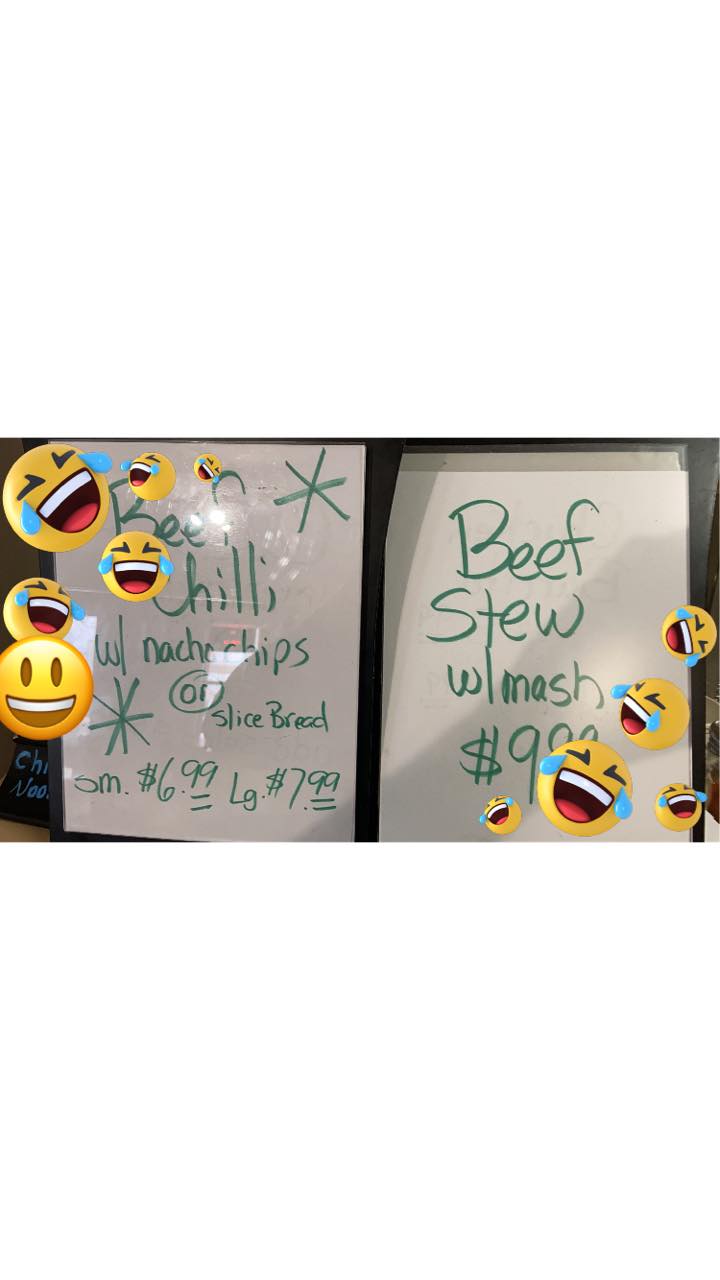 Chilli
w/ nacho chips
or
slice Bread
sm. $6.99 Lg. $7.99
Beef
Stew
w/ mash